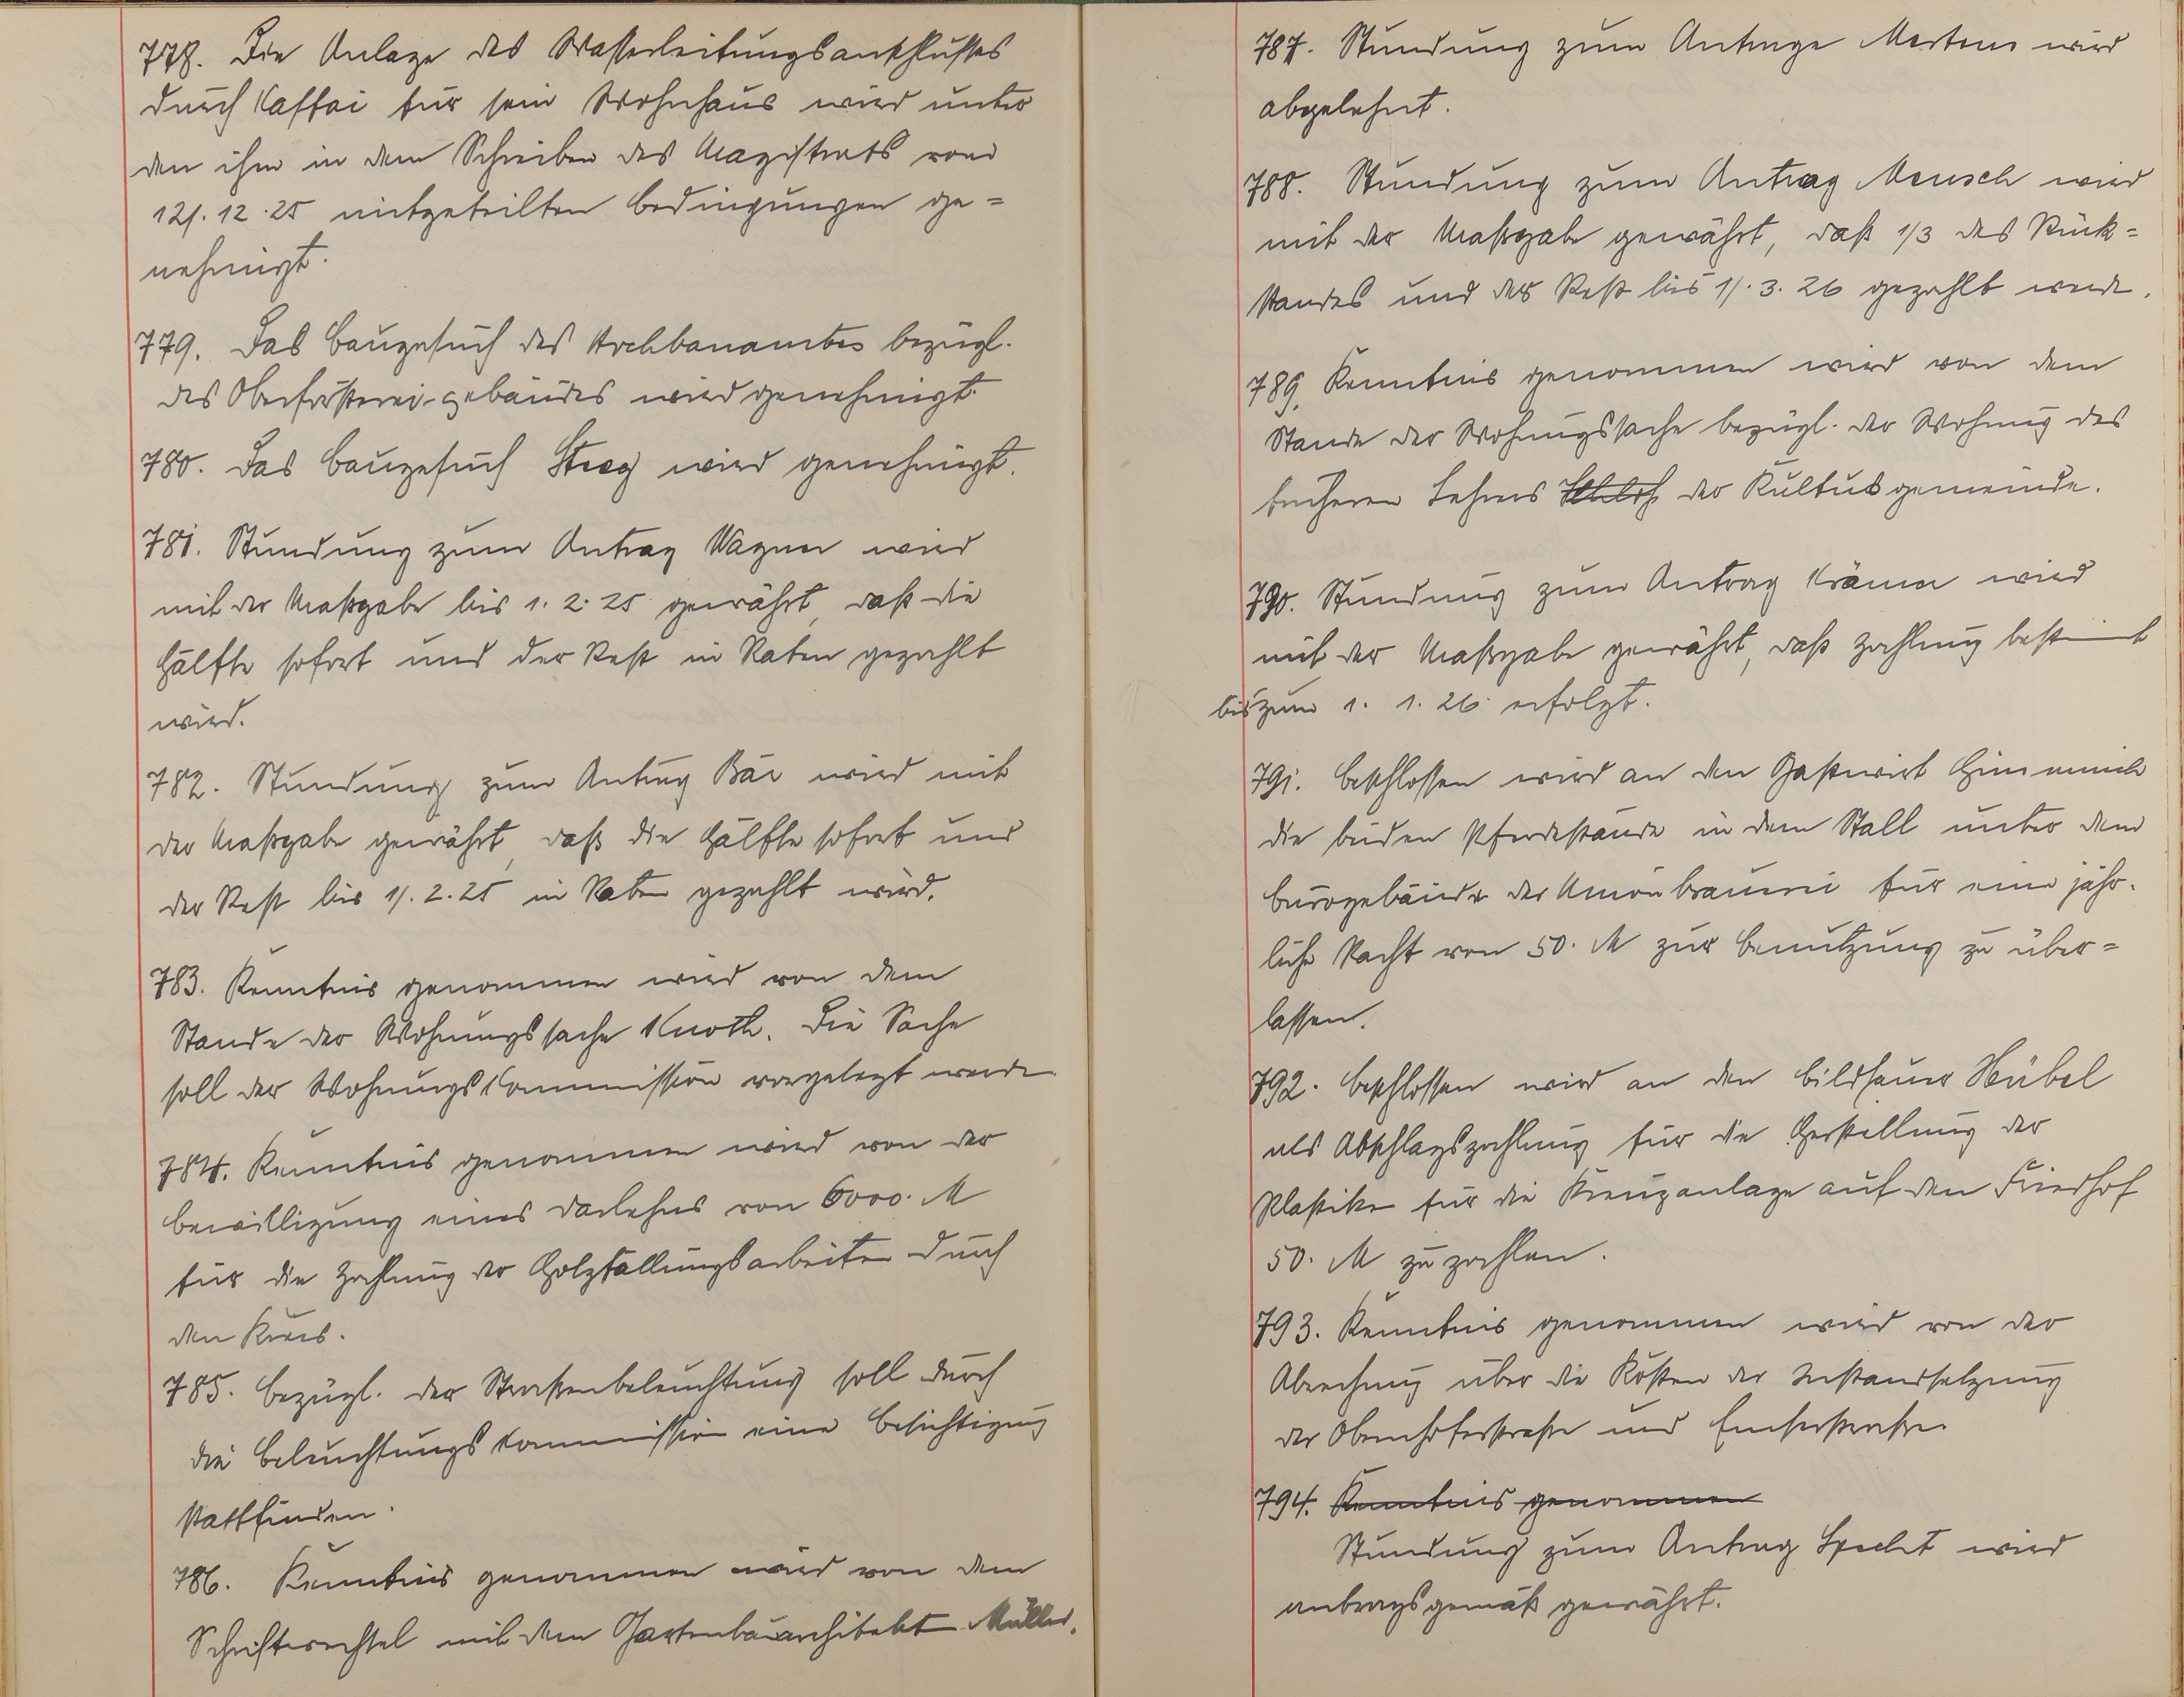 778. Die Anlage des Wasserleitungsanschlusses
durch Kaffai für sein Wohnhaus wird unter
den ihm in dem Schreiben des Magistrats vom
12/. 12. 25 mitgeteilten Bedingungen ge=
nehmigt.
779. Das Baugesuch des Hochbauamtes bezügl.
des Oberförsterei-gebäudes wird genehmigt.
780. Das Baugesuch Steeg wird genehmigt.
781. Stundung zum Antrag Wagner wird
mit der Maßgabe bis 1. 2. 25 gewährt, daß die
Hälfte sofort und der Rest in Raten gezahlt
wird.
782. Stundung zum Antrag Bär wird mit
der Maßgabe gewährt, daß die Hälfte sofort und
der Rest bis 1/. 2. 25 in Raten gezahlt wird.
783. Kenntnis genommen wird von dem
Stande der Wohnungssache Knoth. Die Sache
soll der Wohnungskommission vorgelegt werden.
784. Kenntnis genommen wird von der
Bewilligung eines Darlehns von 6000. M
für die Zahlung der Holzfällungsarbeiten durch
den Kreis.
785. Bezügl. der Straßenbeleuchtung soll durch
die Beleuchtungskommission eine Besichtigung
stattfinden.
786. Kenntnis genommen wird von dem
Schriftwechsel mit dem Gartenbauarchitekt Müller.
787. Stundung zum Antrage Mertens wird
abgelehnt.
788. Stundung zum Antrag Mensch wird
mit der Maßgabe gewährt, daß 1/3 des Rück=
standes und der Rest bis 1/. 3. 26 gezahlt werde.
789. Kenntnis genommen wird von dem
Stande der Wohnungssache bezügl. der Wohnung des
früheren Lehrers der Kultusgemeinde.
790. Stundung zum Antrag Krämer wird
mit der Maßgabe gewährt, daß Zahlung bestimmt
bis zum 1. 1. 26 erfolgt.
791. Beschlossen wird an den Gastwirt Himmrich
die beiden Pferdestände in dem Stall unter dem
Bürogebäude der Amönbrauerei für eine jähr-
liche Pacht von 50. M zur Benutzung zu über=
lassen.
792. Beschlossen wird an den Bildhauer Hübel
als Abschlagszahlung für die Herstellung der
Plastiken für die Kreuzanlage auf den Friedhof
50. M zu zahlen.
793. Kenntnis genommen wird von der
Abrechnung über die Kosten der Instandsetzung
der Obernhoferstraße und Emserstraße.
794. Kenntnis genommen
Stundung zum Antrag Specht wird
antragsgemäß gewährt.